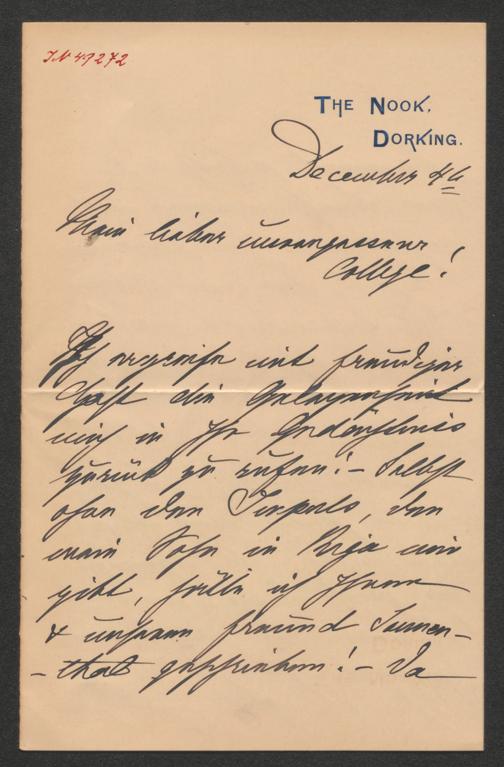 IN 49272
THE NOOK,
DORKING.
December 4th
Mein lieber unvergessener
College!
Ich ergreife mit freudiger
Hast die Gelegenheit
mich in Ihr Gedächtnis
zurück zu rufen! – Selbst
ohne den Impuls, den
mein Sohn in Riga mir
gibt, hätte ich Ihnen
& unserem Freund Sonnen-
-thal geschrieben! – Da